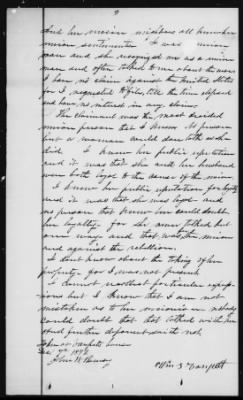 9
And her union neighbors all knew her
union sentiments. I was union
man and she recognized me as a union
man and often talked to me about the war
I have no claim against the United States
for I neglected to file, till the time elapsed
and have no interest in any claim.
The claimant was the most decided
union person that I knew of
but a woman could do with
did. I knew her public reputation
and it was that she and her husband
were both loyal to the cause of the union.
I knew her public reputation for loyalty
and it was that she was loyal and
no person that knew her could doubt
her loyalty for she ever talked but
one way and that was for the union
and against the rebellion.
I dont know about the taking of her
property for I was not present
I cannot recollect particular expres-
sions but I know that I am not
mistaken as to her unionism nobody
could doubt that that talked with her
and further deponent saith not.